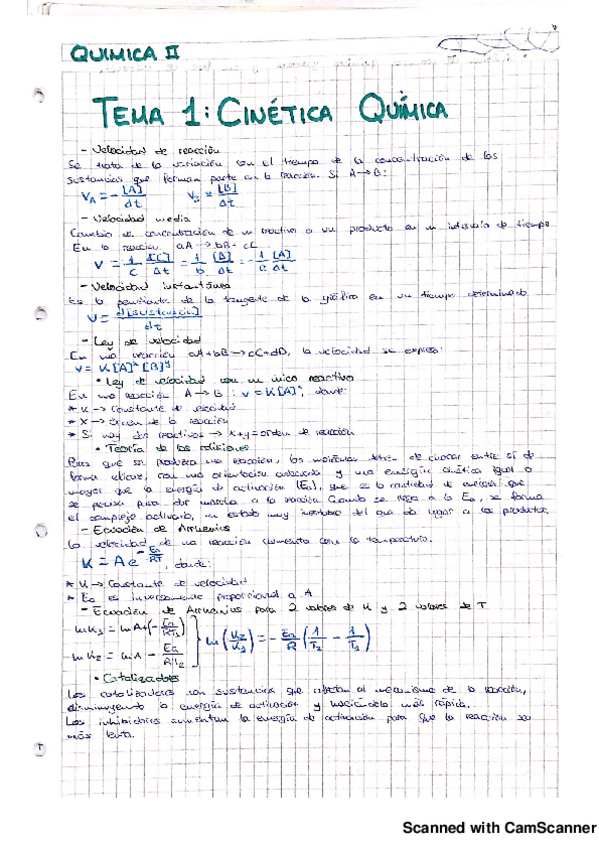 QUIMICA II
TEMA 1: CINÉTICA QUÍMICA
- Velocidad de reacción
Se trata de la variación con el tiempo de la concentración de las
sustancias que forman parte en la reacción. Si A→B:
V_A = - [A]/Δt   V_B = [B]/Δt
- Velocidad media
Cambio de concentración de un reactivo o un producto en un intervalo de tiempo
En la reacción aA→bB+cC
V = 1/c [C]/Δt = 1/b [B]/Δt = - 1/a [A]/Δt
- Velocidad instantánea
Es la pendiente de la tangente de la gráfica en un tiempo determinado
V = d[sustancia]/dt
- Ley de velocidad
En una reacción aA+bB→cC+dD, la velocidad se expresa:
V = K[A]^x [B]^y
• Ley de velocidad con un único reactivo
En una reacción A→B : V = K[A]^x, donde:
* K → Constante de velocidad
* X → Orden de la reacción
* Si hay dos reactivos → x+y = orden de reacción
• Teoría de las colisiones
Para que se produzca una reacción, las moléculas deben de chocar entre sí de
forma eficaz, con una orientación adecuada y una energía cinética igual o
mayor que la energía de activación (Ea), que es la cantidad de energía que
se precisa para dar marcha a la reacción. Cuando se llega a la Ea, se forma
el complejo activado, un estado muy inestable del que da lugar a los productos.
- Ecuación de Arrhenius
La velocidad de una reacción aumenta con la temperatura.
K = A e^(-Ea/RT), donde:
* K → Constante de velocidad
* Ea es inversamente proporcional a A
- Ecuación de Arrhenius para 2 valores de K y 2 valores de T
ln K1 = ln A + (- Ea/RT1)
- ln K2 = ln A - Ea/RT2   ln (K2/K1) = - Ea/R (1/T2 - 1/T1)
• Catalizadores
Los catalizadores son sustancias que afectan al mecanismo de la reacción,
disminuyendo la energía de activación y haciéndola más rápida.
Los inhibidores aumentan la energía de activación para que la reacción sea
más lenta.
Scanned with CamScanner